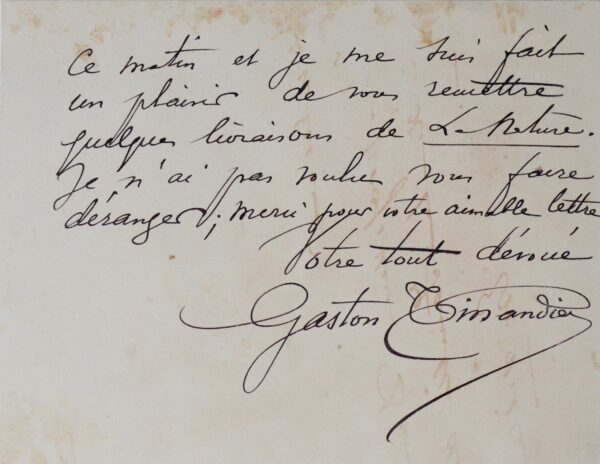 Ce matin et je me suis fait
un plaisir de vous remettre
quelques livraisons de La Nature.
Je n'ai pas voulu vous faire
déranger; merci pour votre aimable lettre
Votre tout dévoué
Gaston Tissandier